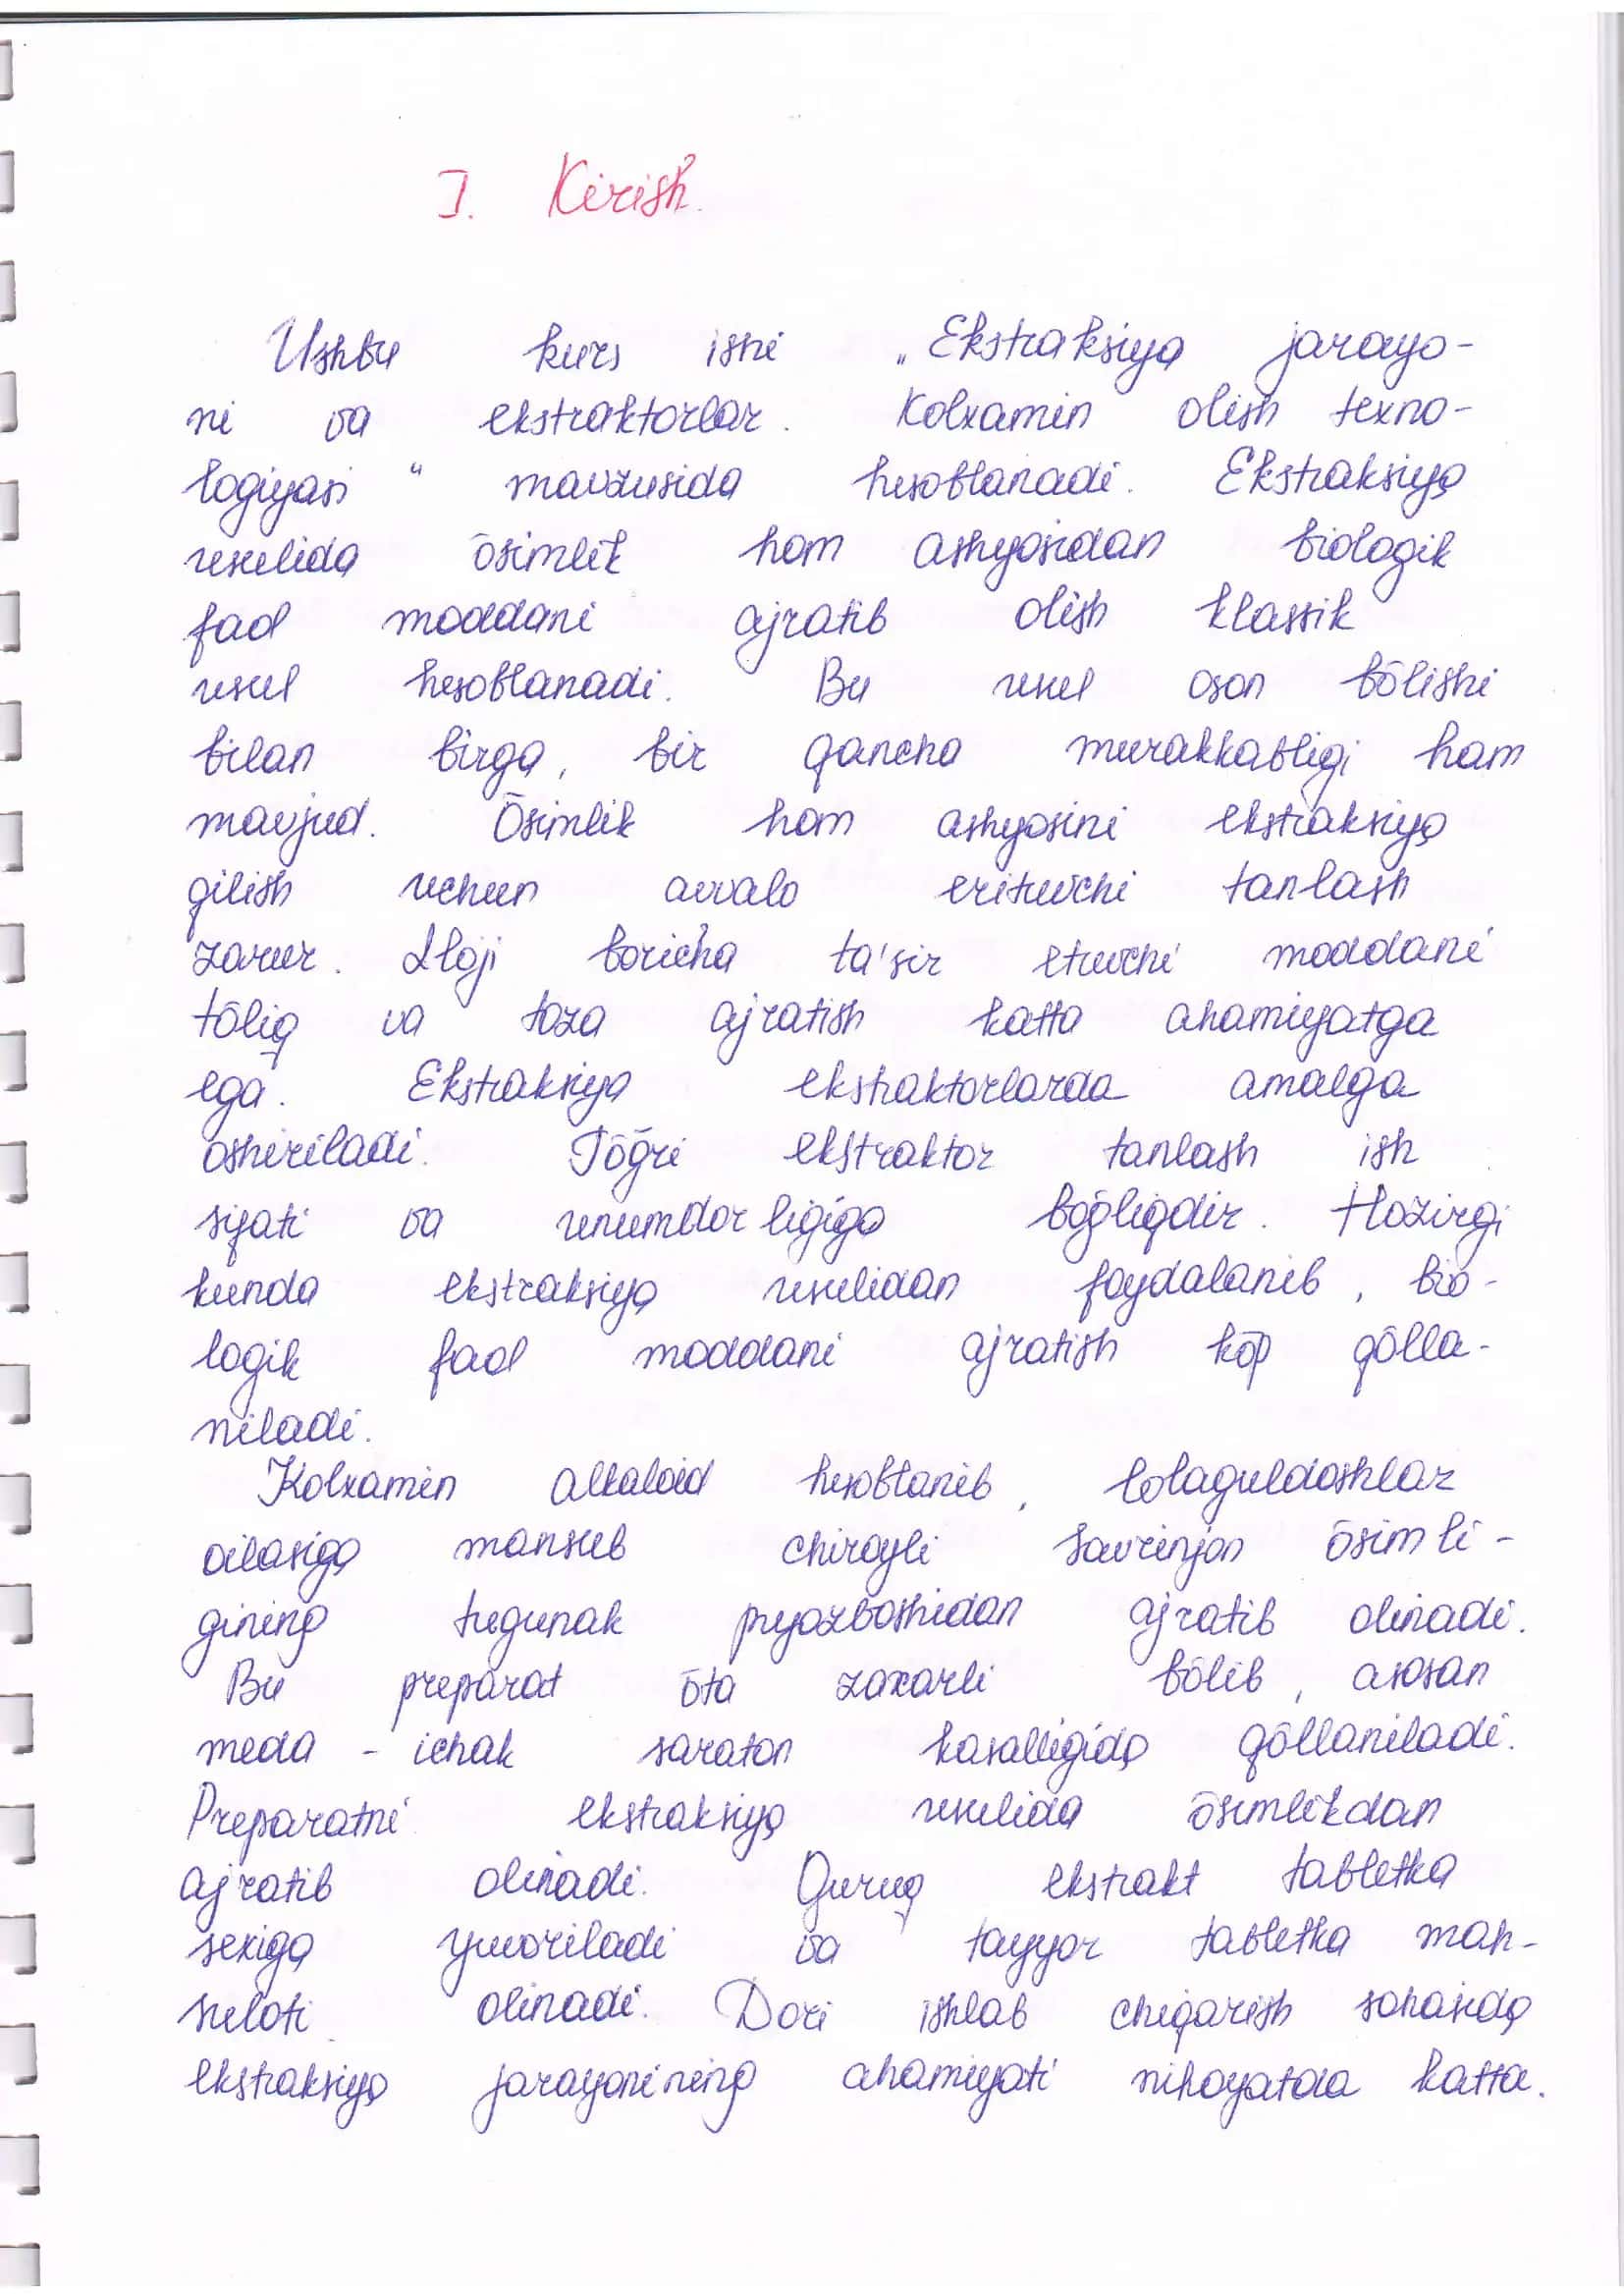 I. Kirish.
Ushbu kurs ishi „Ekstraksiya jarayo-
ni va ekstraktorlar. Kolxamin olish texno-
logiyasi “ mavzusida hisoblanadi. Ekstraksiya
usulida ōsimlik hom ashyosidan biologik
faol moddani ajratib olish klassik
usul hisoblanadi. Bu usul oson bōlishi
bilan birga, bir qancha murakkabligi ham
mavjud. Ōsimlik hom ashyosini ekstraksiya
qilish uchun avvalo erituvchi tanlash
zarur. Iloji boricha ta'sir etuvchi moddani
tōliq va toza ajratish katta ahamiyatga
ega. Ekstraksiya ekstraktorlarda amalga
oshiriladi. Tōḡri ekstraktor tanlash ish
sifati va unumdorligiga boḡliqdir. Hozirgi
kunda ekstraksiya usulidan foydalanib, bio-
logik faol moddani ajratish kōp qōlla-
niladi.
Kolxamin alkaloid hisoblanib, lolaguldoshlar
oilasiga mansub chiroyli savrinjon ōsimli-
gining tugunak piyozboshidan ajratib olinadi.
Bu preparat ōta zaxarli bōlib, asosan
meda - ichak saraton kasalligida qōllaniladi.
Preparatni ekstraksiya usulida ōsimlikdan
ajratib olinadi. Quruq ekstrakt tabletka
sexiga yuvoriladi va tayyor tabletka mah-
suloti olinadi. Dori ishlab chiqarish sohasida
ekstraksiya jarayonining ahamiyati nihoyatda katta.